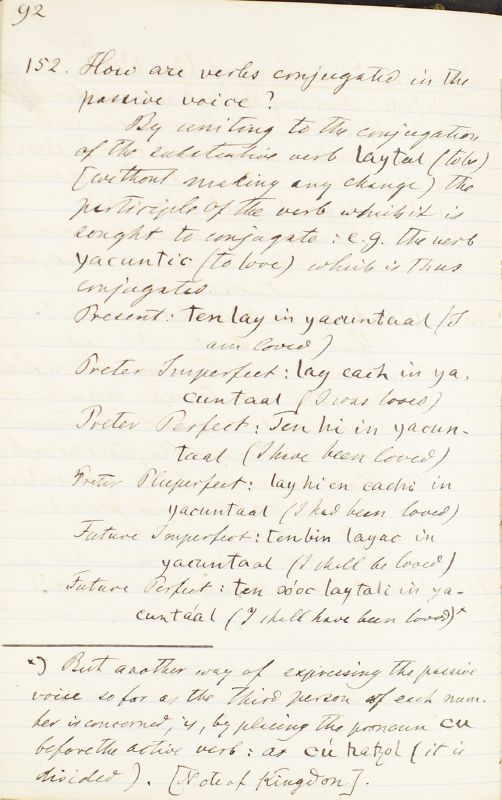 92
152. How are verbs conjugated in the
passive voice?
By uniting to the conjugation
of the substantive verb laytal (to be)
[without making any change) the
participle of the verb which it is
sought to conjugate: e.g. the verb
yacuntic (to love) which is thus
conjugated.
Present: ten lay in yacuntaal (I
am loved)
Preter Imperfect: lay cach in ya.
cuntaal (I was loved)
Preter Perfect: Ten hi in yacun-
taal (I have been loved)
Preter Pluperfect: lay hi en cachi in
yacuntaal (I had been loved)
Future Imperfect: ten bin layac in
yacuntaal (I shall be loved)
Future Perfect: ten laytali in ya-
cuntáal (I shall have been loved)*
*) But another way of expressing the passive
voice so far as the third person of each num-
ber is concerned, is, by placing the pronoun cu
before the active verb: as cú hatzol (it is
divided). [Note of Kingdon].